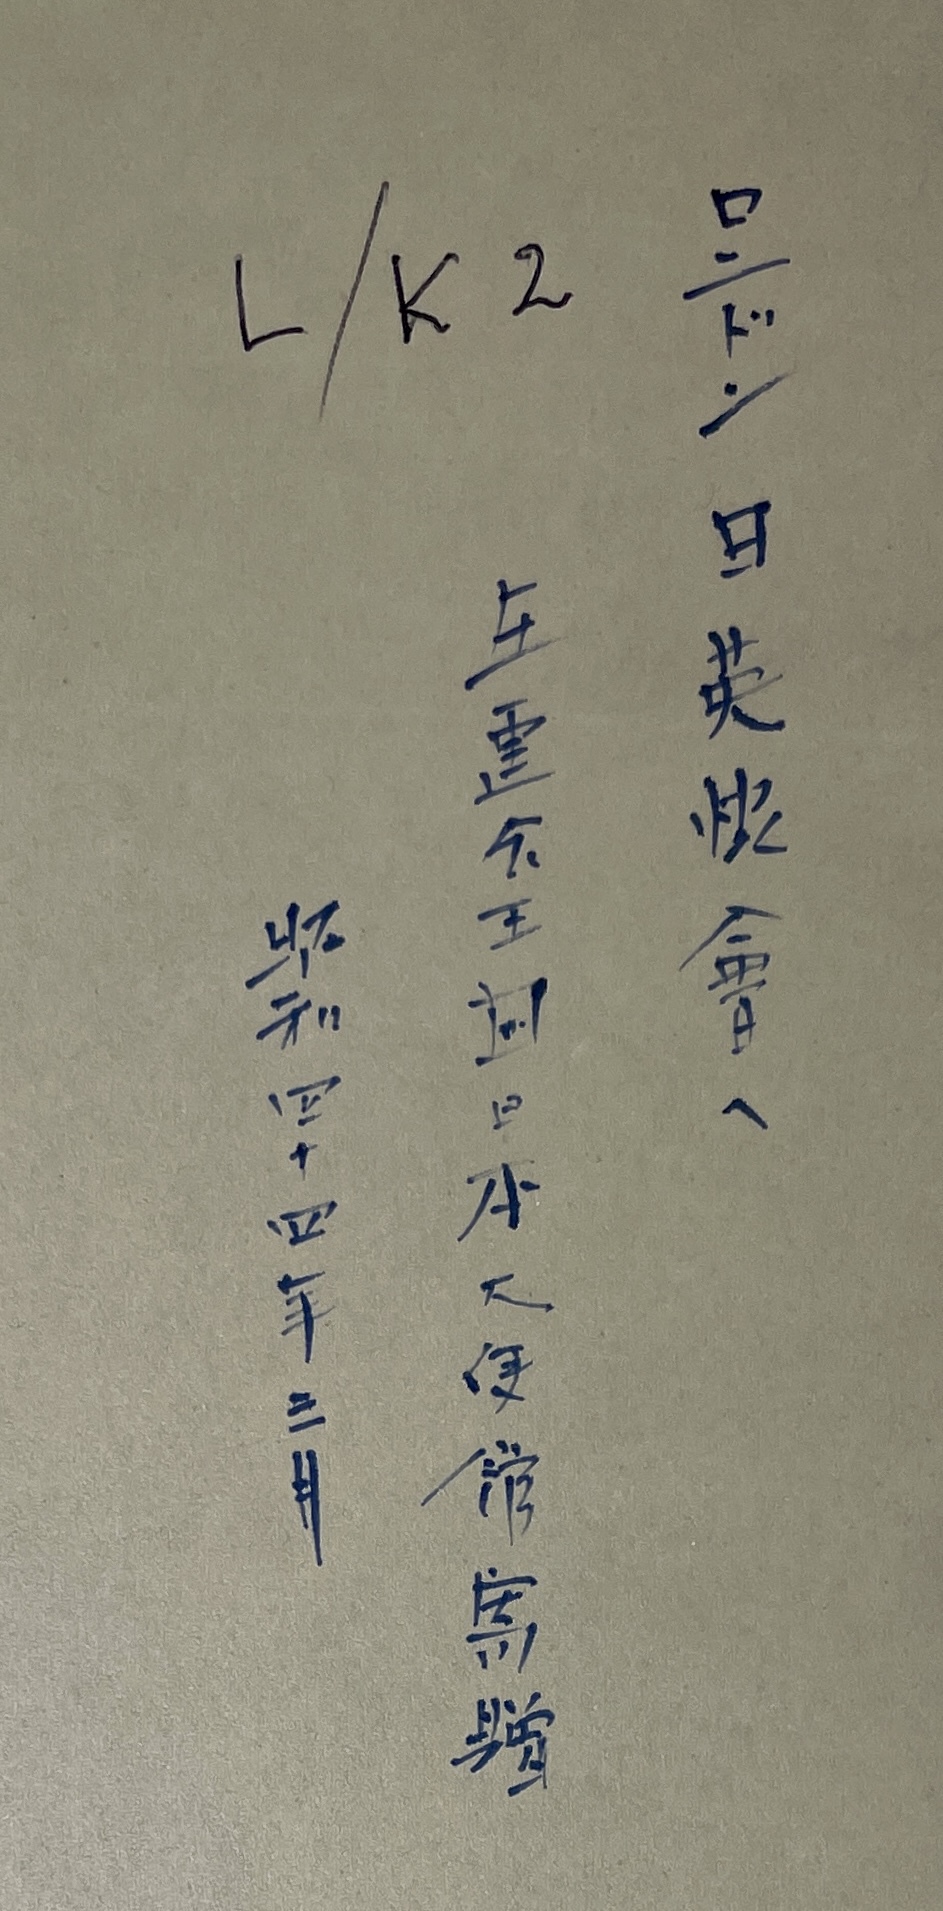 ロンドン日英協會へ
在連合王國日本大使館寄贈
昭和四十四年三月
L/K 2